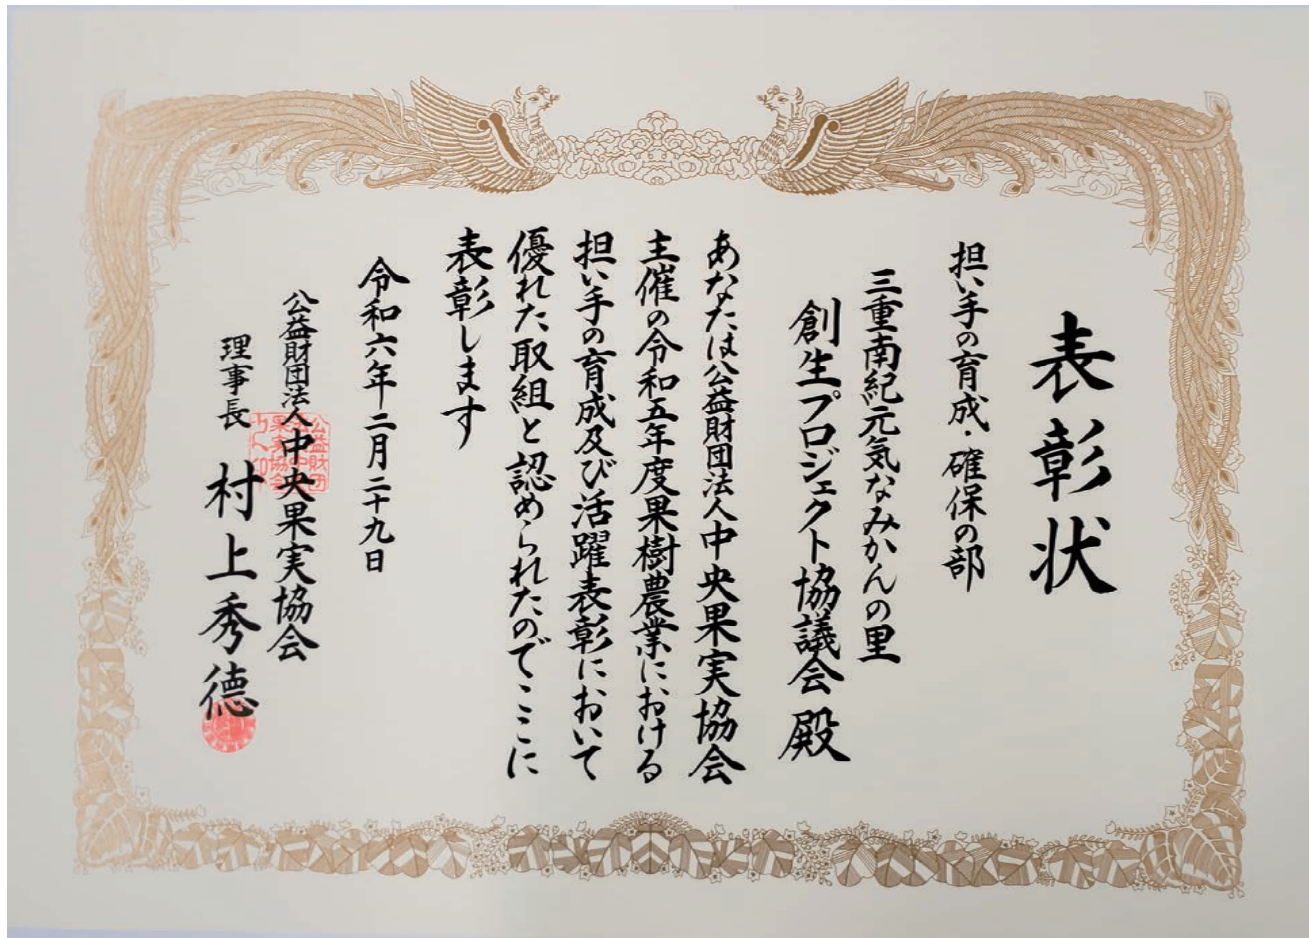 表彰状
担い手の育成・確保の部
三重南紀元気なみかんの里
創生プロジェクト協議会 殿
あなたは公益財団法人中央果実協会
主催の令和五年度果樹農業における
担い手の育成及び活躍表彰において
優れた取組と認められたのでここに
表彰します
令和六年二月二十九日
公益財団法人中央果実協会
理事長 村上秀徳